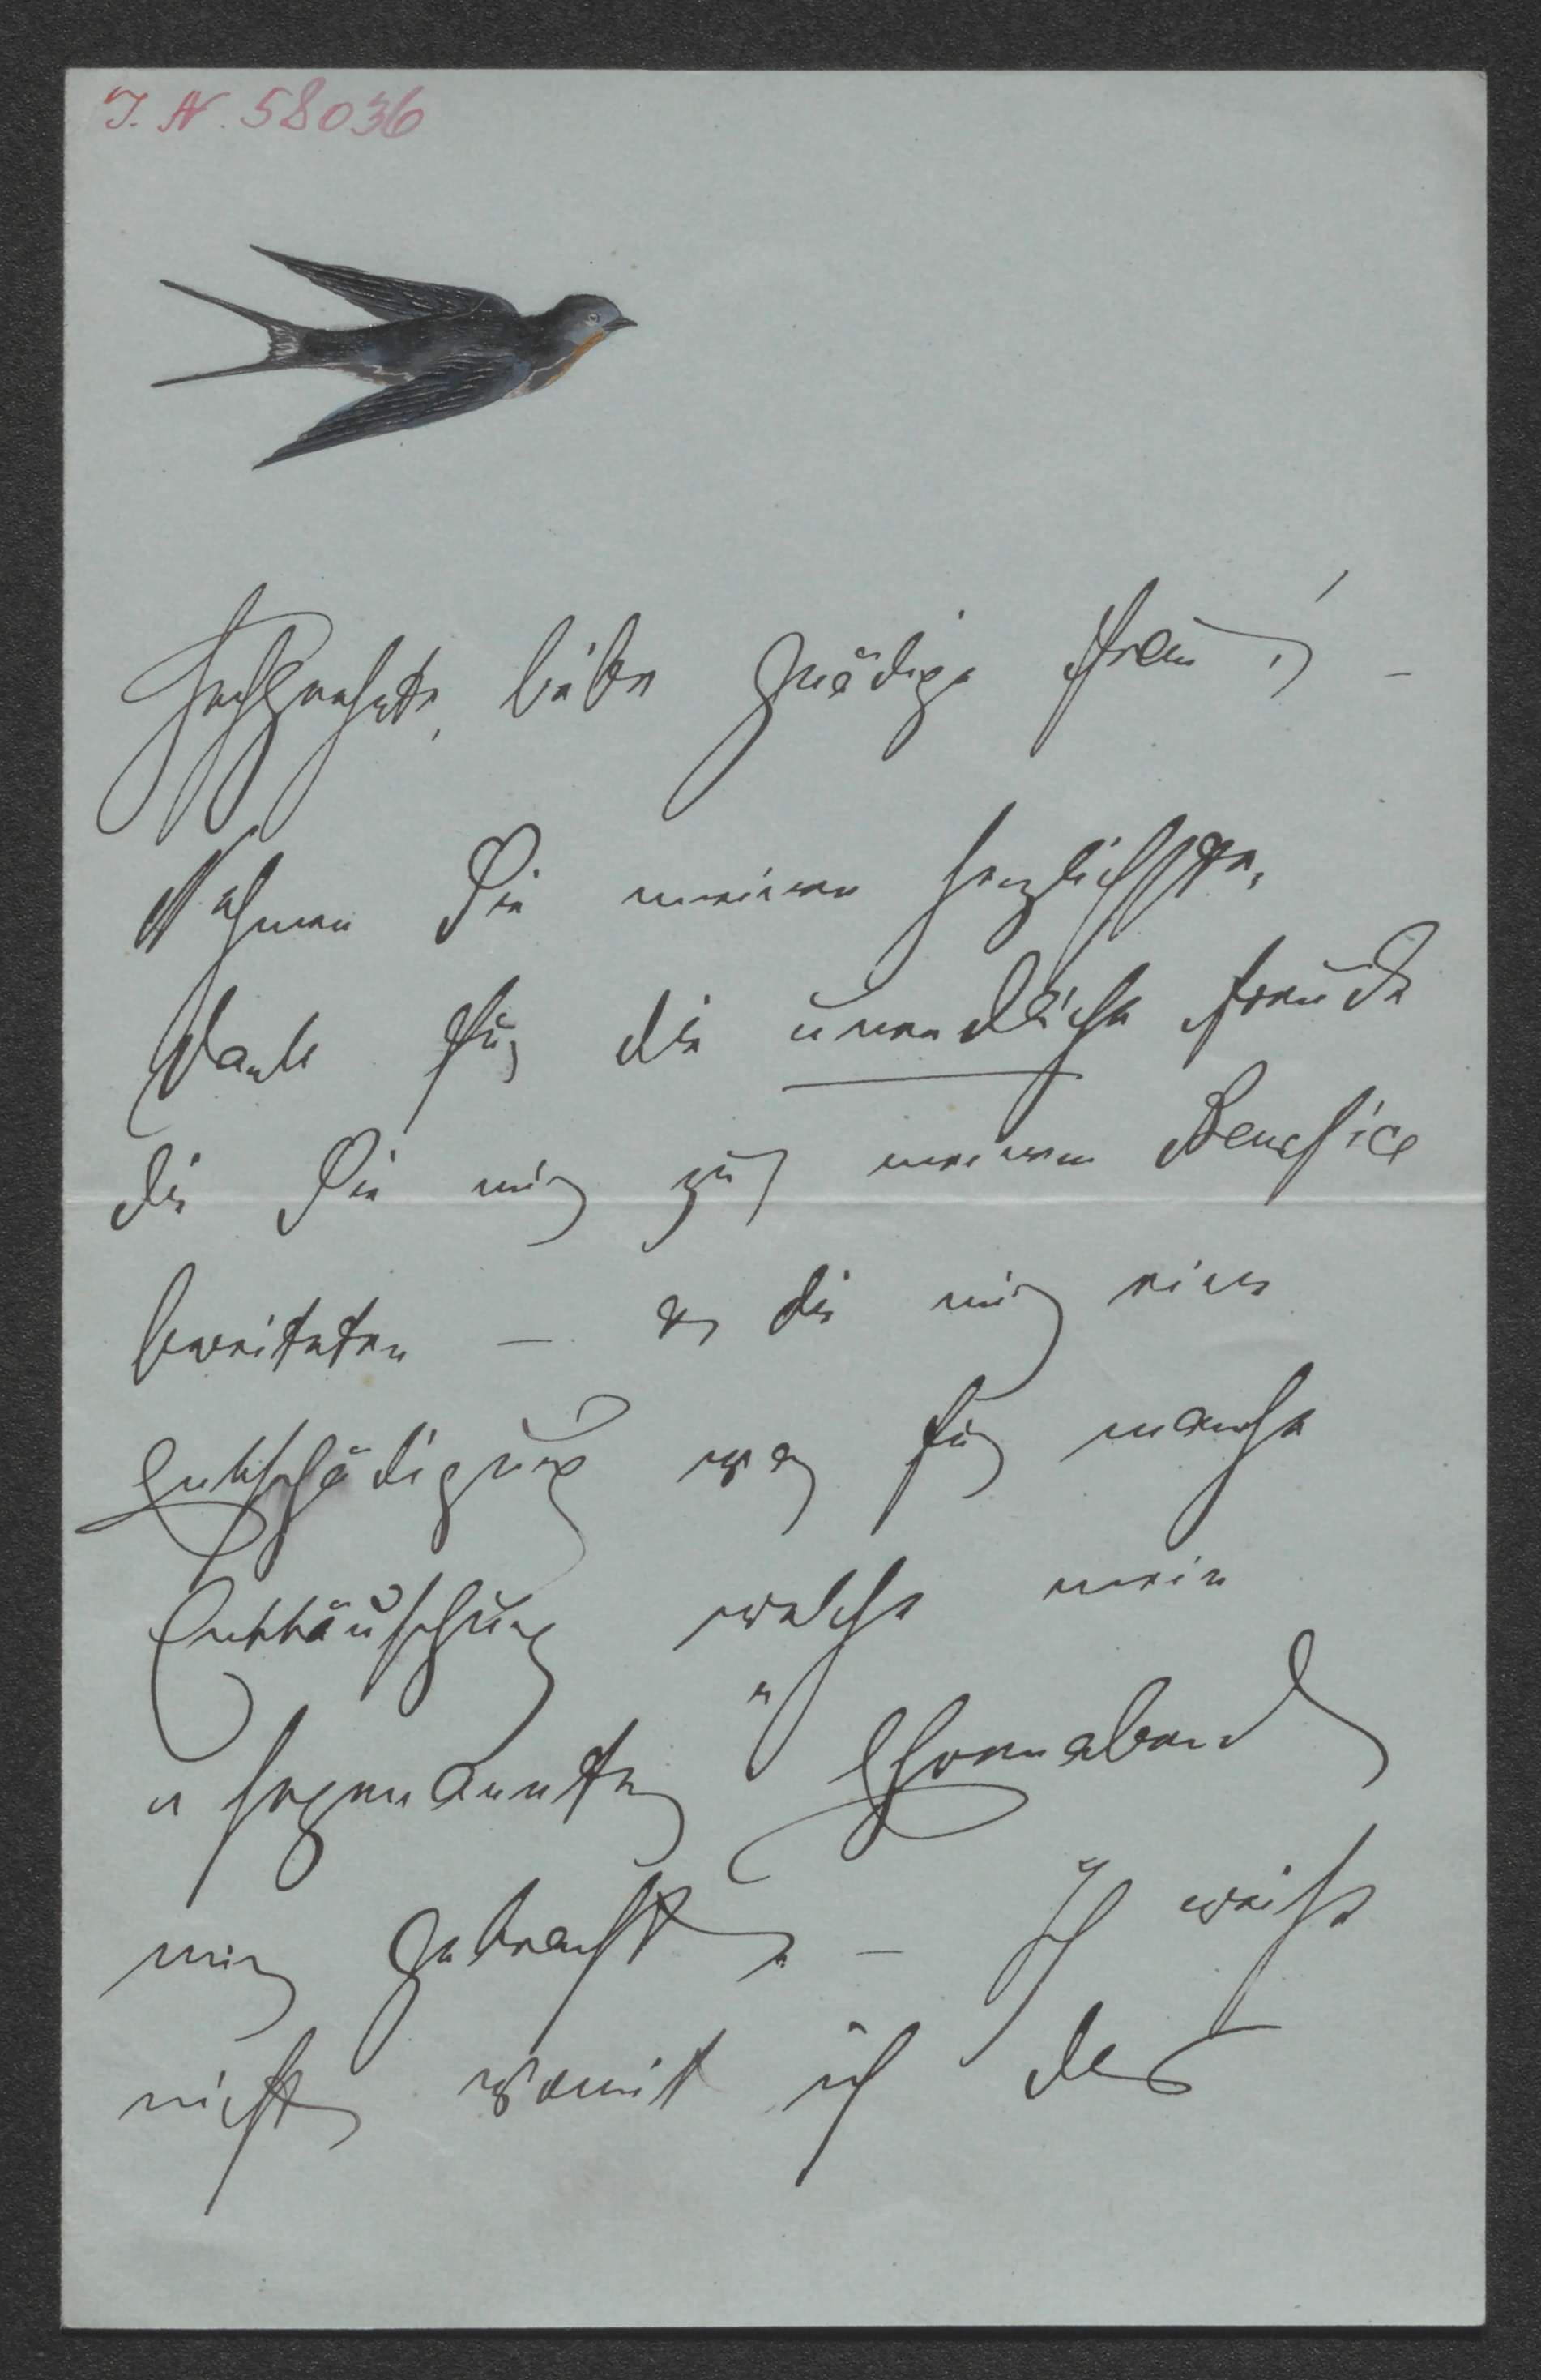 I. N. 58036
Hochgeehrte, liebe gnädige Frau! –
Nehmen Sie meinen herzlichsten,
Dank für die unendliche Freude
die Sie mir zu meinem Benefice
bereiteten – die mir eine
Entschädigung war für manche
Enttäuschung welche mein
sogenannter „Ehrenabend
mir gebracht. – Ich weiß
nicht womit ich das